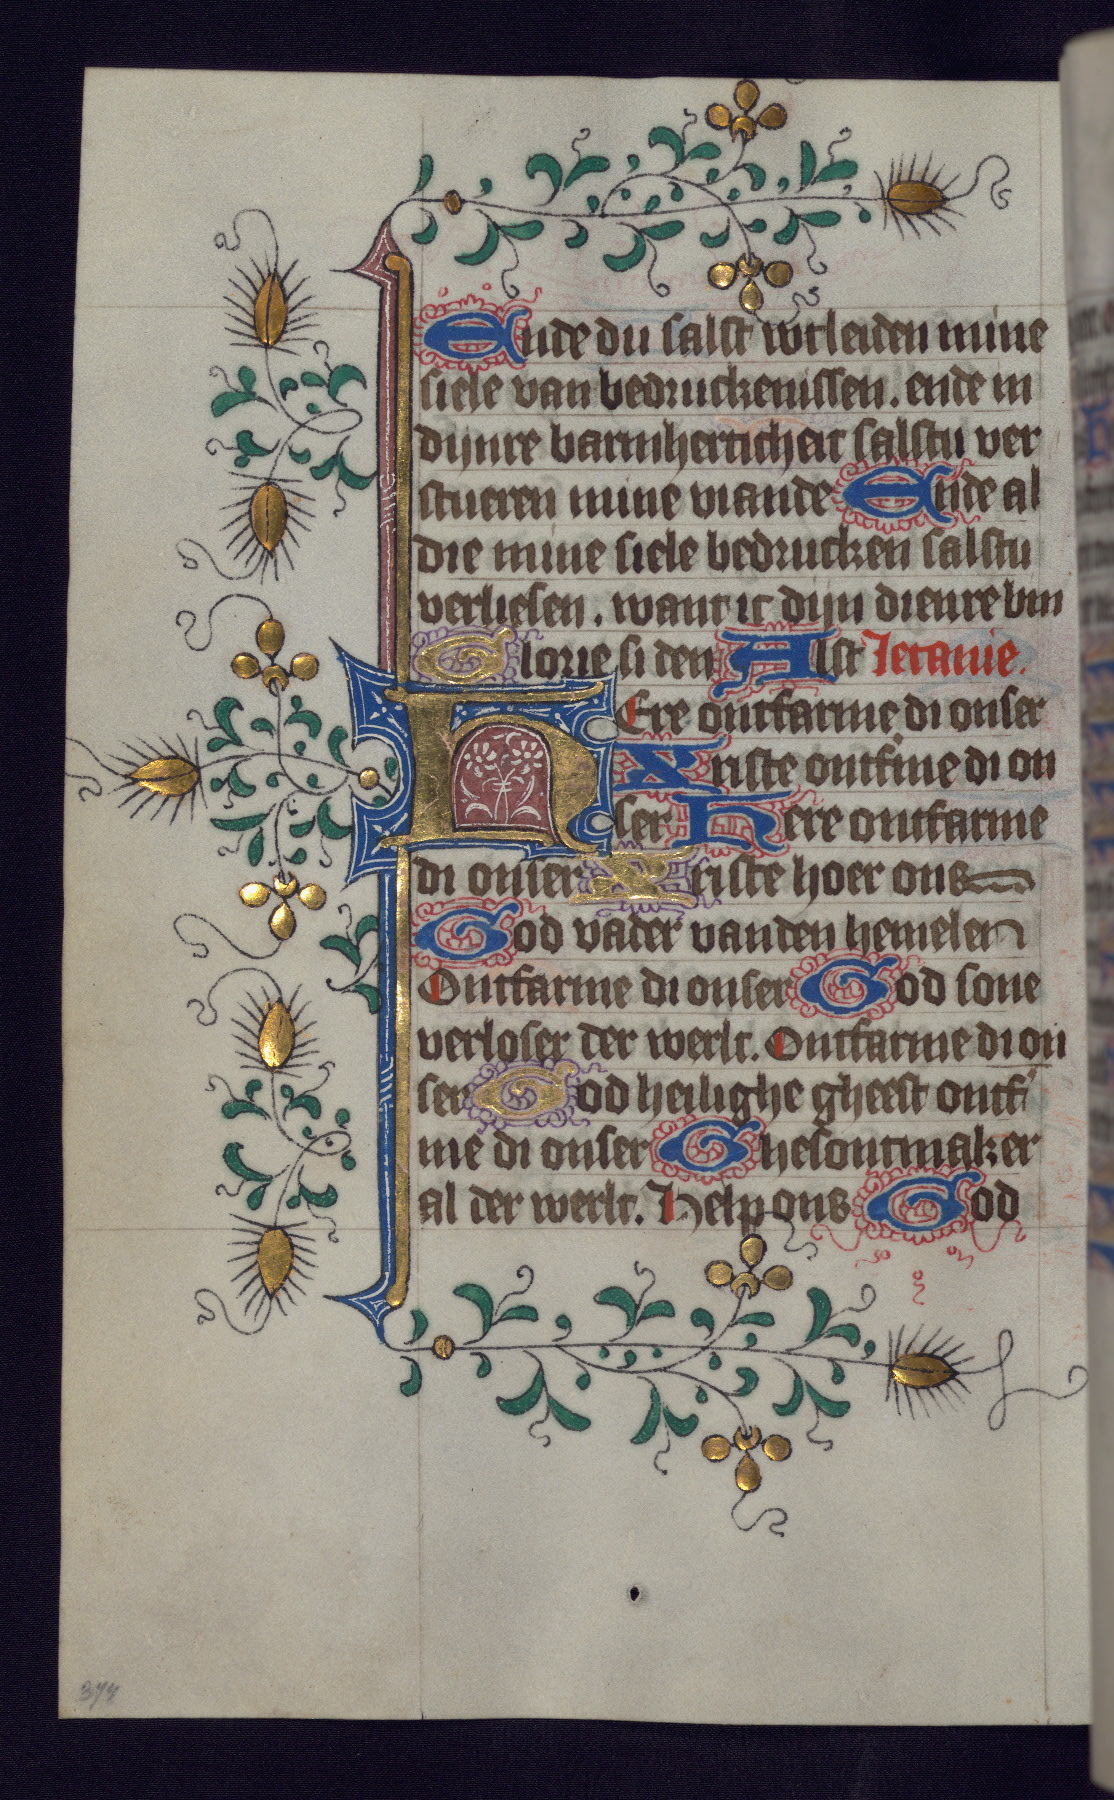 Ende du salst wtleiden mine
siele van bedruckenissen. ende in
dijnre barmherticheit salstu ver
stueren mine viande Ende al
die mine siele bedrucken salstu
verliesen. want ic dijn dienre bin
Glorie si den Alst letanie.
HEre ontfarme di onser
Xriste ontfme di on
ser Here ontfarme
di onser Xriste hoer ons
God vader vanden hemelen
Ontfarme di onser God sone
verloser der werlt. Ontfarme di on
ser God heilighe gheest ontf
me di onser Ghesontmaker
al der werlt. Help ons God